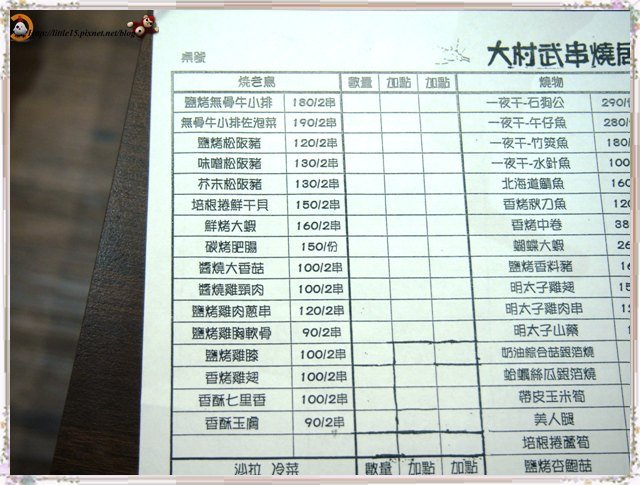 http://little15.pixnet.net/blog
桌號
大村武串燒居
燒老鳥 數量 加點 加點 燒物
鹽烤無骨牛小排 180/2串 一夜干-石狗公 290/
無骨牛小排佐泡菜 190/2串 一夜干-午仔魚 280/
鹽烤松阪豬 120/2串 一夜干-竹筴魚 180/
味噌松阪豬 130/2串 一夜干-水針魚 100/
芥末松阪豬 130/2串 北海道鯖魚 160
培根捲鮮干貝 150/2串 香烤秋刀魚 120
鮮烤大蝦 160/2串 香烤中卷 38
碳烤肥腸 150/份 蝴蝶大蝦 26
醬燒大香菇 100/2串 鹽烤香料豬 16
醬燒雞頸肉 100/2串 明太子雞翅 15
鹽燒雞肉蔥串 120/2串 明太子雞肉串 12
鹽燒雞胸軟骨 90/2串 明太子山藥 1
鹽烤雞膝 100/2串 奶油綜合菇銀箔燒
香烤雞翅 100/2串 蛤蠣絲瓜銀箔燒
香酥七里香 100/2串 帶皮玉米筍
香酥玉膚 90/2串 美人腿
培根捲蘆筍
沙拉 冷菜 數量 加點 加點 鹽烤杏鮑菇